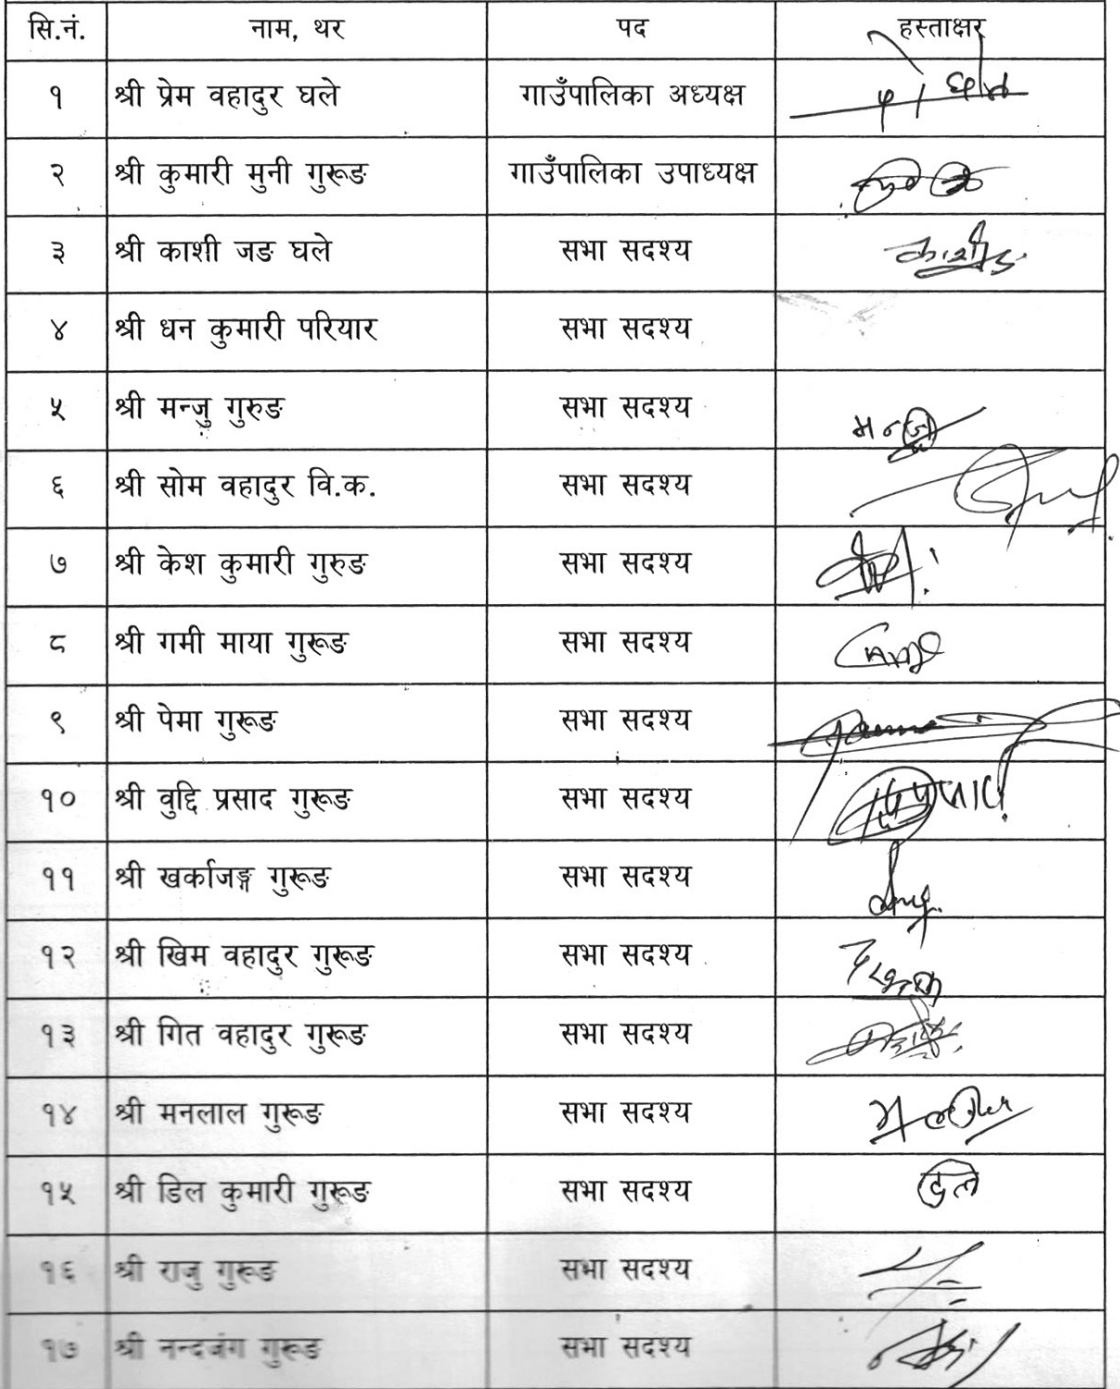 सि.नं. नाम, थर पद हस्ताक्षर
१ श्री प्रेम वहादुर घले गाउँपालिका अध्यक्ष
२ श्री कुमारी मुनी गुरूङ गाउँपालिका उपाध्यक्ष
३ श्री काशी जङ घले सभा सदश्य
४ श्री धन कुमारी परियार सभा सदश्य
५ श्री मन्जु गुरुङ सभा सदश्य मन्जु
६ श्री सोम वहादुर वि.क. सभा सदश्य
७ श्री केश कुमारी गुरुङ सभा सदश्य
८ श्री गमी माया गुरूङ सभा सदश्य
९ श्री पेमा गुरूङ सभा सदश्य
१० श्री वुद्दि प्रसाद गुरूङ सभा सदश्य
११ श्री खर्काजङ्ग गुरूङ सभा सदश्य
१२ श्री खिम वहादुर गुरूङ सभा सदश्य
१३ श्री गित वहादुर गुरूङ सभा सदश्य
१४ श्री मनलाल गुरूङ सभा सदश्य
१५ श्री डिल कुमारी गुरूङ सभा सदश्य
१६ श्री राजु गुरूङ सभा सदश्य
१७ श्री नन्दजंग गुरूङ सभा सदश्य